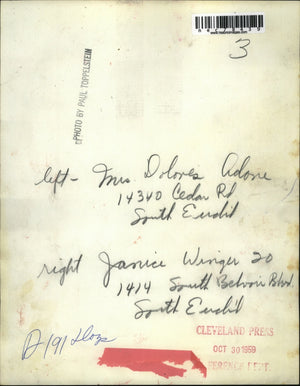 3
PHOTO BY PAUL TOPPELSTEIN
left - Mrs Dolores Adone
14340 Cedar Rd
South Euclid
right Janice Winger 20
1414 South Belvoir Blvd.
South Euclid
D-191 Dogs
CLEVELAND PRESS
OCT 30 1959
REFERENCE DEPT.